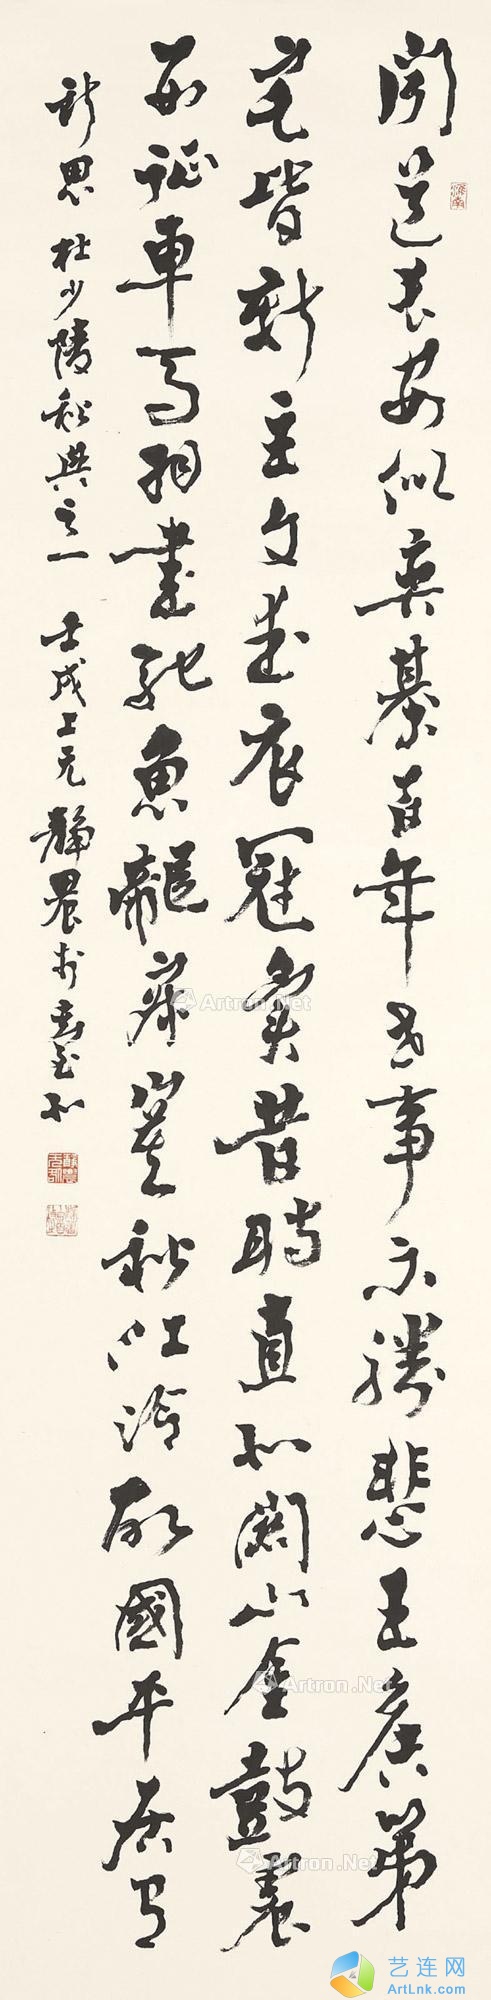 聞道長安似奕棊百年世事不勝悲王侯第
宅皆新主文武衣冠異昔時直北關山金鼓震
西征車馬羽書馳魚龍寂寞秋江冷故國平居有
所思 杜少陵秋興之一 壬戌上元 靜農於臺北
Artron.Net
Artron.Net
Artron.Net
Artron.Net
艺连网
ArtLnk.com